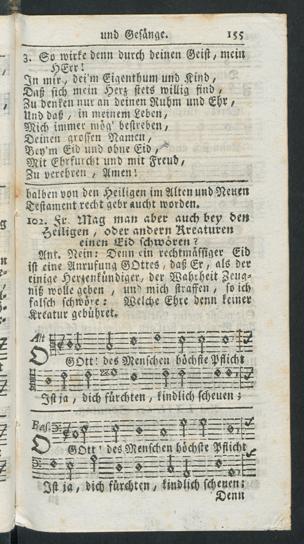 und Gesänge. 155
3. So wirke denn durch deinen Geist, mein
HErr!
In mir, dei'm Eigenthum und Kind,
Daß sich mein Herz stets willig find,
Zu denken nur an deinen Ruhm und Ehr,
Und daß, in meinem Leben,
Mich immer mög' bestreben,
Deinen grossen Namen,
Bey'm Eid und ohne Eid,
Mit Ehrfurcht und mit Freud,
Zu verehren, Amen!
halben von den Heiligen im Alten und Neuen
Testament recht gebraucht worden.
102. Fr. Mag man aber auch bey den
Heiligen, oder andern Kreaturen
einen Eid schwören?
Ant. Nein: Denn ein rechtmäßiger Eid
ist eine Anrufung GOttes, daß Er, als der
einige Herzenkündiger, der Wahrheit Zeug-
niß wolle geben, und mich straffen, so ich
falsch schwöre: Welche Ehre denn keiner
Kreatur gebühret.
Alt
O GOtt! des Menschen höchste Pflicht
Ist ja, dich fürchten, kindlich scheuen;
Baß.
O GOtt! des Menschen höchste Pflicht
Ist ja, dich fürchten, kindlich scheuen;
Denn